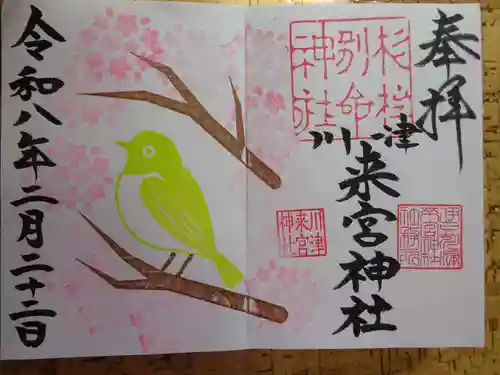 奉拝
川津
来宮神社
杉桙
別命
神社
川津
来宮
神社
令和八年二月二十二日